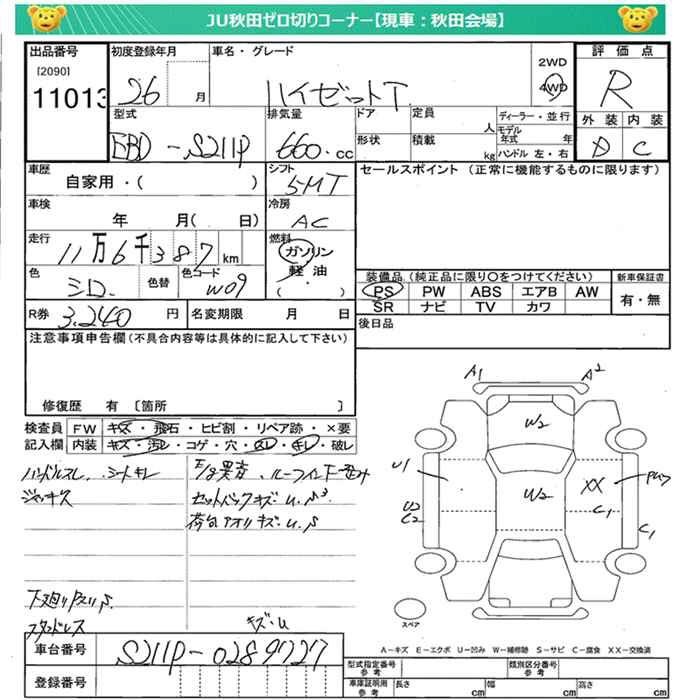 JU秋田ゼロ切りコーナー【現車：秋田会場】
出品番号 初度登録年月 車名・グレード 2WD 評価点
[2090] 26 月 ハイゼットT 4WD R
11013
型式 排気量 ドア 定員 人 ディーラー・並行 外装 内装
EBD-S211P 660.cc 形状 積載 kg モデル年式 年 D C
ハンドル 左・右
車歴 シフト セールスポイント (正常に機能するものに限ります)
自家用・( ) 5MT
車検 冷房
年 月( 日) AC
走行 燃料
11万6千387km ガソリン
軽油
( )
色 色替 色コード 装備品 (純正品に限り〇をつけてください) 新車保証書
シロ. W09 PS PW ABS エアB AW 有・無
SR ナビ TV カワ
R券 3,240円 名変期限 月 日 後日品
注意事項申告欄 (不具合内容等は具体的に記入して下さい)
修復歴 有 〔箇所 〕
検査員 FW キズ・飛石・ヒビ割・リペア跡・×要
記入欄 内装 キズ・汚レ・コゲ・穴・スレ・キレ・破レ
ハンドルスレ、シートキレ
ジャッキス
セットバックキズ.U.
荷台アオリキズ.U.S
下廻りP入リS.
スタッドレス
キズ.U
A1 A2
W2
U1 W2 XX
U2 C1
C2 C1
スペア
A-キズ E-エクボ U-凹み W-補修跡 S-サビ C-腐食 XX-交換済
車台番号 S211P-0289727
登録番号
型式指定番号 参考 類別区分番号 参考
車庫証明用 参考 長さ cm 幅 cm 高さ cm